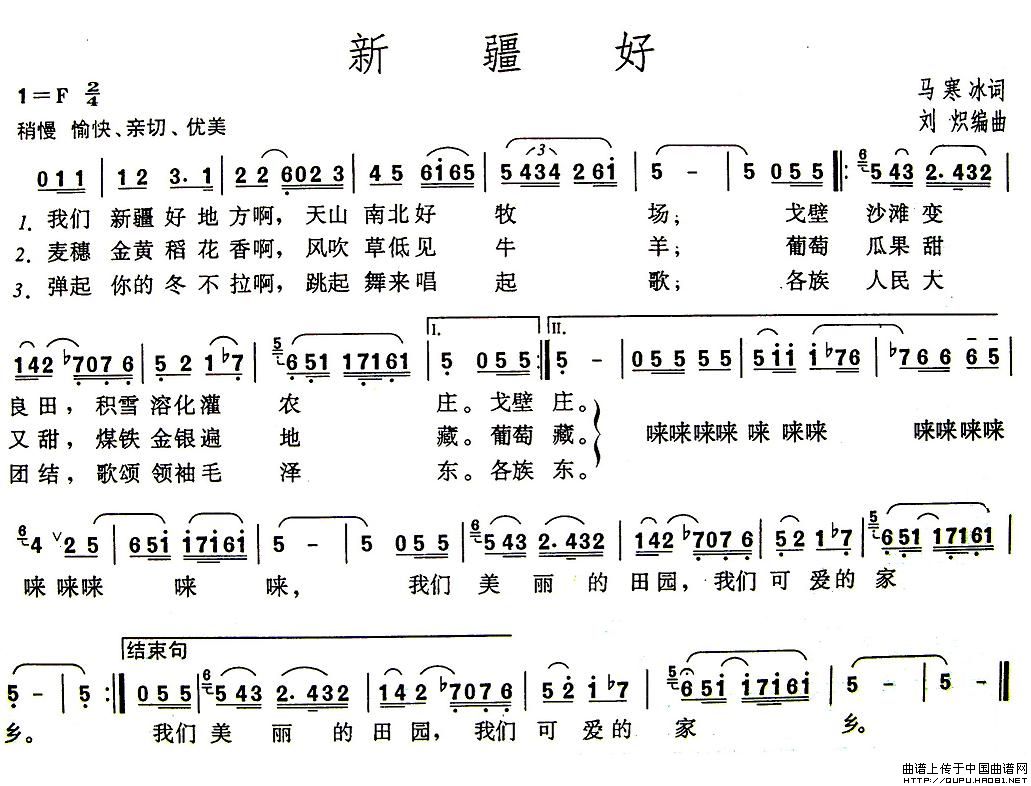 新疆好
1=F 2/4
马寒冰词
稍慢 愉快、亲切、优美
刘炽编曲
0 1 1 | 1 2 3. 1 | 2 2 6 0 2 3 | 4 5 6 i 6 5 | 5 4 3 4 2 6 i | 5 - | 5 0 5 5 |: 6 5 4 3 2. 4 3 2 |
1. 我们 新疆 好 地 方啊, 天山 南北 好 牧 场; 戈壁 沙滩 变
2. 麦穗 金黄 稻 花 香啊, 风吹 草低 见 牛 羊; 葡萄 瓜果 甜
3. 弹起 你的 冬 不 拉啊, 跳起 舞来 唱 起 歌; 各族 人民 大
1 4 2 ♭7 0 7 6 | 5 2 1 ♭7 | 5 6 5 1 1 7 1 6 1 | I. 5 0 5 5 :| II. 5 - | 0 5 5 5 5 | 5 i i i ♭7 6 | ♭7 6 6 6 5 |
良田, 积雪 溶化 灌 农 庄。戈壁 庄。
又甜, 煤铁 金银 遍 地 藏。葡萄 藏。
团结, 歌颂 领袖 毛 泽 东。各族 东。
唻唻唻唻 唻 唻唻 唻唻唻唻
6 4 ∨ 2 5 | 6 5 i i 7 i 6 i | 5 - | 5 0 5 5 | 6 5 4 3 2. 4 3 2 | 1 4 2 ♭7 0 7 6 | 5 2 1 ♭7 | 5 6 5 1 1 7 1 6 1 |
唻 唻唻 唻 唻, 我们 美 丽 的 田园, 我们 可 爱的 家
5 - | 5 :| 结束句 0 5 5 | 6 5 4 3 2. 4 3 2 | 1 4 2 ♭7 0 7 6 | 5 2 i ♭7 | 6 6 5 i i 7 i 6 i | 5 - | 5 - ‖
乡。 我们 美 丽 的 田园, 我们 可 爱的 家 乡。
曲谱上传于中国曲谱网
HTTP://QUPU.HAO81.NET